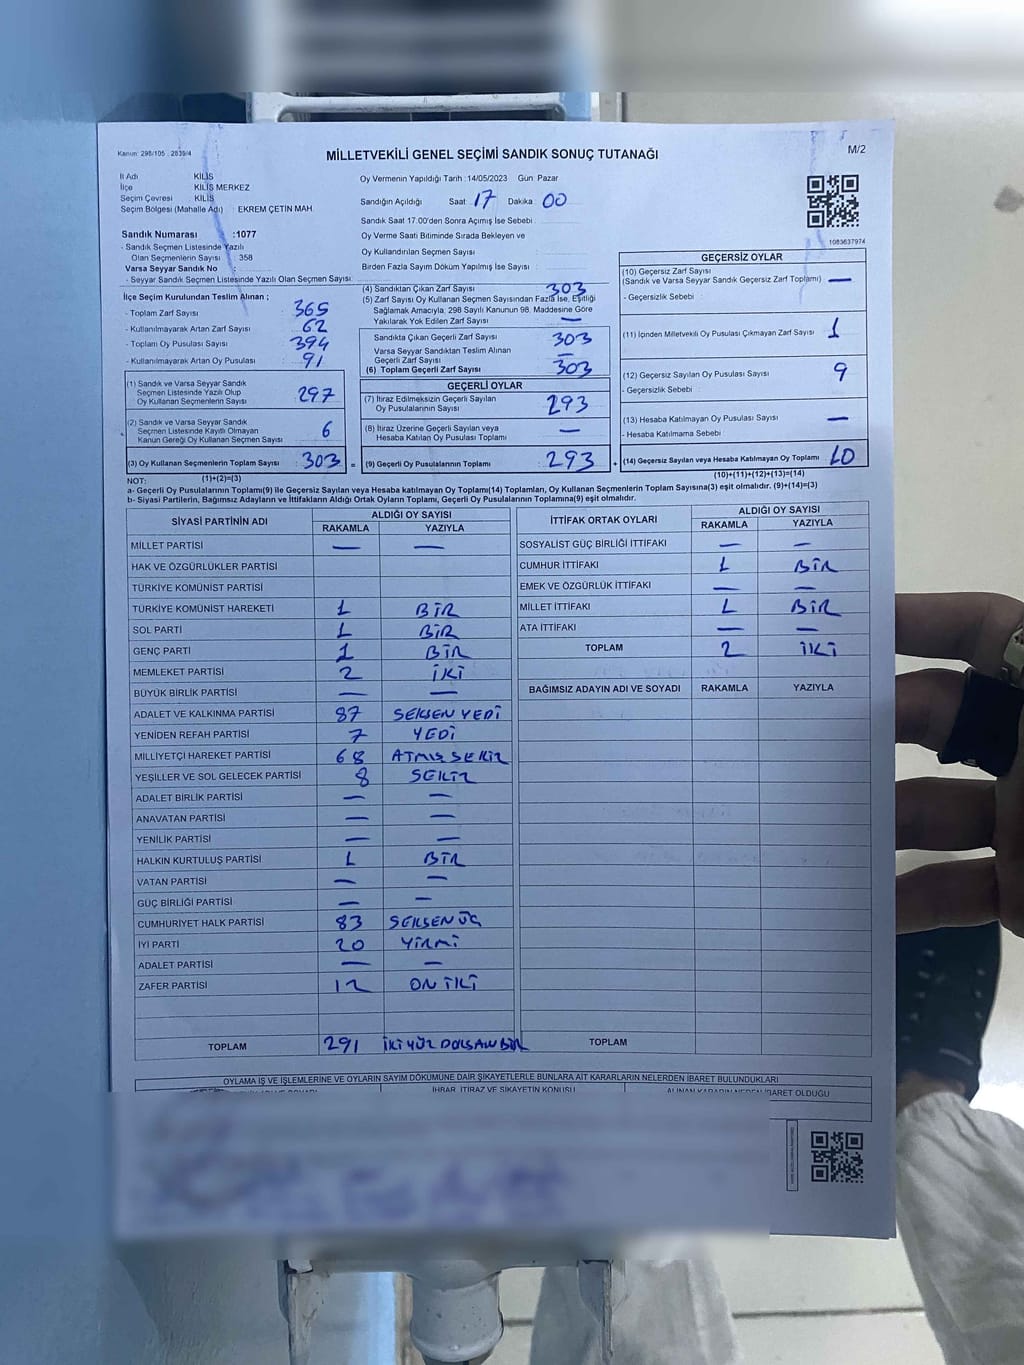 Kanun: 298/105 , 2839/4
MİLLETVEKİLİ GENEL SEÇİMİ SANDIK SONUÇ TUTANAĞI
M/2
İl Adı KİLİS
İlçe KİLİS MERKEZ
Seçim Çevresi KİLİS
Seçim Bölgesi (Mahalle Adı) : EKREM ÇETİN MAH.
Oy Vermenin Yapıldığı Tarih :14/05/2023 Gün: Pazar
Sandığın Açıldığı Saat : 17 Dakika 00
Sandık Saat 17.00'den Sonra Açımış İse Sebebi :
Oy Verme Saati Bitiminde Sırada Bekleyen ve
Oy Kullandırılan Seçmen Sayısı :
Birden Fazla Sayım Döküm Yapılmış İse Sayısı :
1083637974
Sandık Numarası :1077
- Sandık Seçmen Listesinde Yazılı
Olan Seçmenlerin Sayısı : 358
Varsa Seyyar Sandık No :
- Seyyar Sandık Seçmen Listesinde Yazılı Olan Seçmen Sayısı:
İlçe Seçim Kurulundan Teslim Alınan ;
- Toplam Zarf Sayısı : 365
- Kullanılmayarak Artan Zarf Sayısı : 62
- Toplam Oy Pusulası Sayısı : 394
- Kullanılmayarak Artan Oy Pusulası : 91
(1) Sandık ve Varsa Seyyar Sandık
Seçmen Listesinde Yazılı Olup
Oy Kullanan Seçmenlerin Sayısı : 297
(2) Sandık ve Varsa Seyyar Sandık
Seçmen Listesinde Kayıtlı Olmayan
Kanun Gereği Oy Kullanan Seçmen Sayısı : 6
(3) Oy Kullanan Seçmenlerin Toplam Sayısı : 303 =
(4) Sandıktan Çıkan Zarf Sayısı : 303
(5) Zarf Sayısı Oy Kullanan Seçmen Sayısından Fazla İse, Eşitliği
Sağlamak Amacıyla, 298 Sayılı Kanunun 98. Maddesine Göre
Yakılarak Yok Edilen Zarf Sayısı : —
Sandıkta Çıkan Geçerli Zarf Sayısı : 303
Varsa Seyyar Sandıktan Teslim Alınan
Geçerli Zarf Sayısı : —
(6) Toplam Geçerli Zarf Sayısı : 303
GEÇERLİ OYLAR
(7) İtiraz Edilmeksizin Geçerli Sayılan
Oy Pusulalarının Sayısı : 293
(8) İtiraz Üzerine Geçerli Sayılan veya
Hesaba Katılan Oy Pusulası Toplamı : —
(9) Geçerli Oy Pusulalarının Toplamı : 293 +
GEÇERSİZ OYLAR
(10) Geçersiz Zarf Sayısı
(Sandık ve Varsa Seyyar Sandık Geçersiz Zarf Toplamı) : —
- Geçersizlik Sebebi :
(11) İçinden Milletvekili Oy Pusulası Çıkmayan Zarf Sayısı : 1
(12) Geçersiz Sayılan Oy Pusulası Sayısı : 9
- Geçersizlik Sebebi :
(13) Hesaba Katılmayan Oy Pusulası Sayısı : —
- Hesaba Katılmama Sebebi :
(14) Geçersiz Sayılan veya Hesaba Katılmayan Oy Toplamı : 10
NOT: (1)+(2)=(3) (10)+(11)+(12)+(13)=(14)
a- Geçerli Oy Pusulalarının Toplamı(9) ile Geçersiz Sayılan veya Hesaba katılmayan Oy Toplamı(14) Toplamları, Oy Kullanan Seçmenlerin Toplam Sayısına(3) eşit olmalıdır. (9)+(14)=(3)
b- Siyasi Partilerin, Bağımsız Adayların ve İttifakların Aldığı Ortak Oyların Toplamı, Geçerli Oy Pusulalarının Toplamına(9) eşit olmalıdır.
SİYASİ PARTİNİN ADI ALDIĞI OY SAYISI
RAKAMLA YAZIYLA
MİLLET PARTİSİ — —
HAK VE ÖZGÜRLÜKLER PARTİSİ
TÜRKİYE KOMÜNİST PARTİSİ
TÜRKİYE KOMÜNİST HAREKETİ 1 BİR
SOL PARTİ 1 BİR
GENÇ PARTİ 1 BİR
MEMLEKET PARTİSİ 2 İKİ
BÜYÜK BİRLİK PARTİSİ — —
ADALET VE KALKINMA PARTİSİ 87 SEKSEN YEDİ
YENİDEN REFAH PARTİSİ 7 YEDİ
MİLLİYETÇİ HAREKET PARTİSİ 68 ATMIŞ SEKİZ
YEŞİLLER VE SOL GELECEK PARTİSİ 8 SEKİZ
ADALET BİRLİK PARTİSİ — —
ANAVATAN PARTİSİ — —
YENİLİK PARTİSİ — —
HALKIN KURTULUŞ PARTİSİ 1 BİR
VATAN PARTİSİ — —
GÜÇ BİRLİĞİ PARTİSİ — —
CUMHURİYET HALK PARTİSİ 83 SEKSEN ÜÇ
İYİ PARTİ 20 YİRMİ
ADALET PARTİSİ — —
ZAFER PARTİSİ 12 ON İKİ
TOPLAM 291 İKİ YÜZ DOKSAN BİR
İTTİFAK ORTAK OYLARI ALDIĞI OY SAYISI
RAKAMLA YAZIYLA
SOSYALİST GÜÇ BİRLİĞİ İTTİFAKI — —
CUMHUR İTTİFAKI 1 BİR
EMEK VE ÖZGÜRLÜK İTTİFAKI — —
MİLLET İTTİFAKI 1 BİR
ATA İTTİFAKI — —
TOPLAM 2 İKİ
BAĞIMSIZ ADAYIN ADI VE SOYADI RAKAMLA YAZIYLA
TOPLAM
OYLAMA İŞ VE İŞLEMLERİNE VE OYLARIN SAYIM DÖKÜMÜNE DAİR ŞİKAYETLERLE BUNLARA AİT KARARLARIN NELERDEN İBARET BULUNDUKLARI
İHBAR, İTİRAZ VE ŞİKAYETİN KONUSU
ALINAN KARARIN NEDEN İBARET OLDUĞU